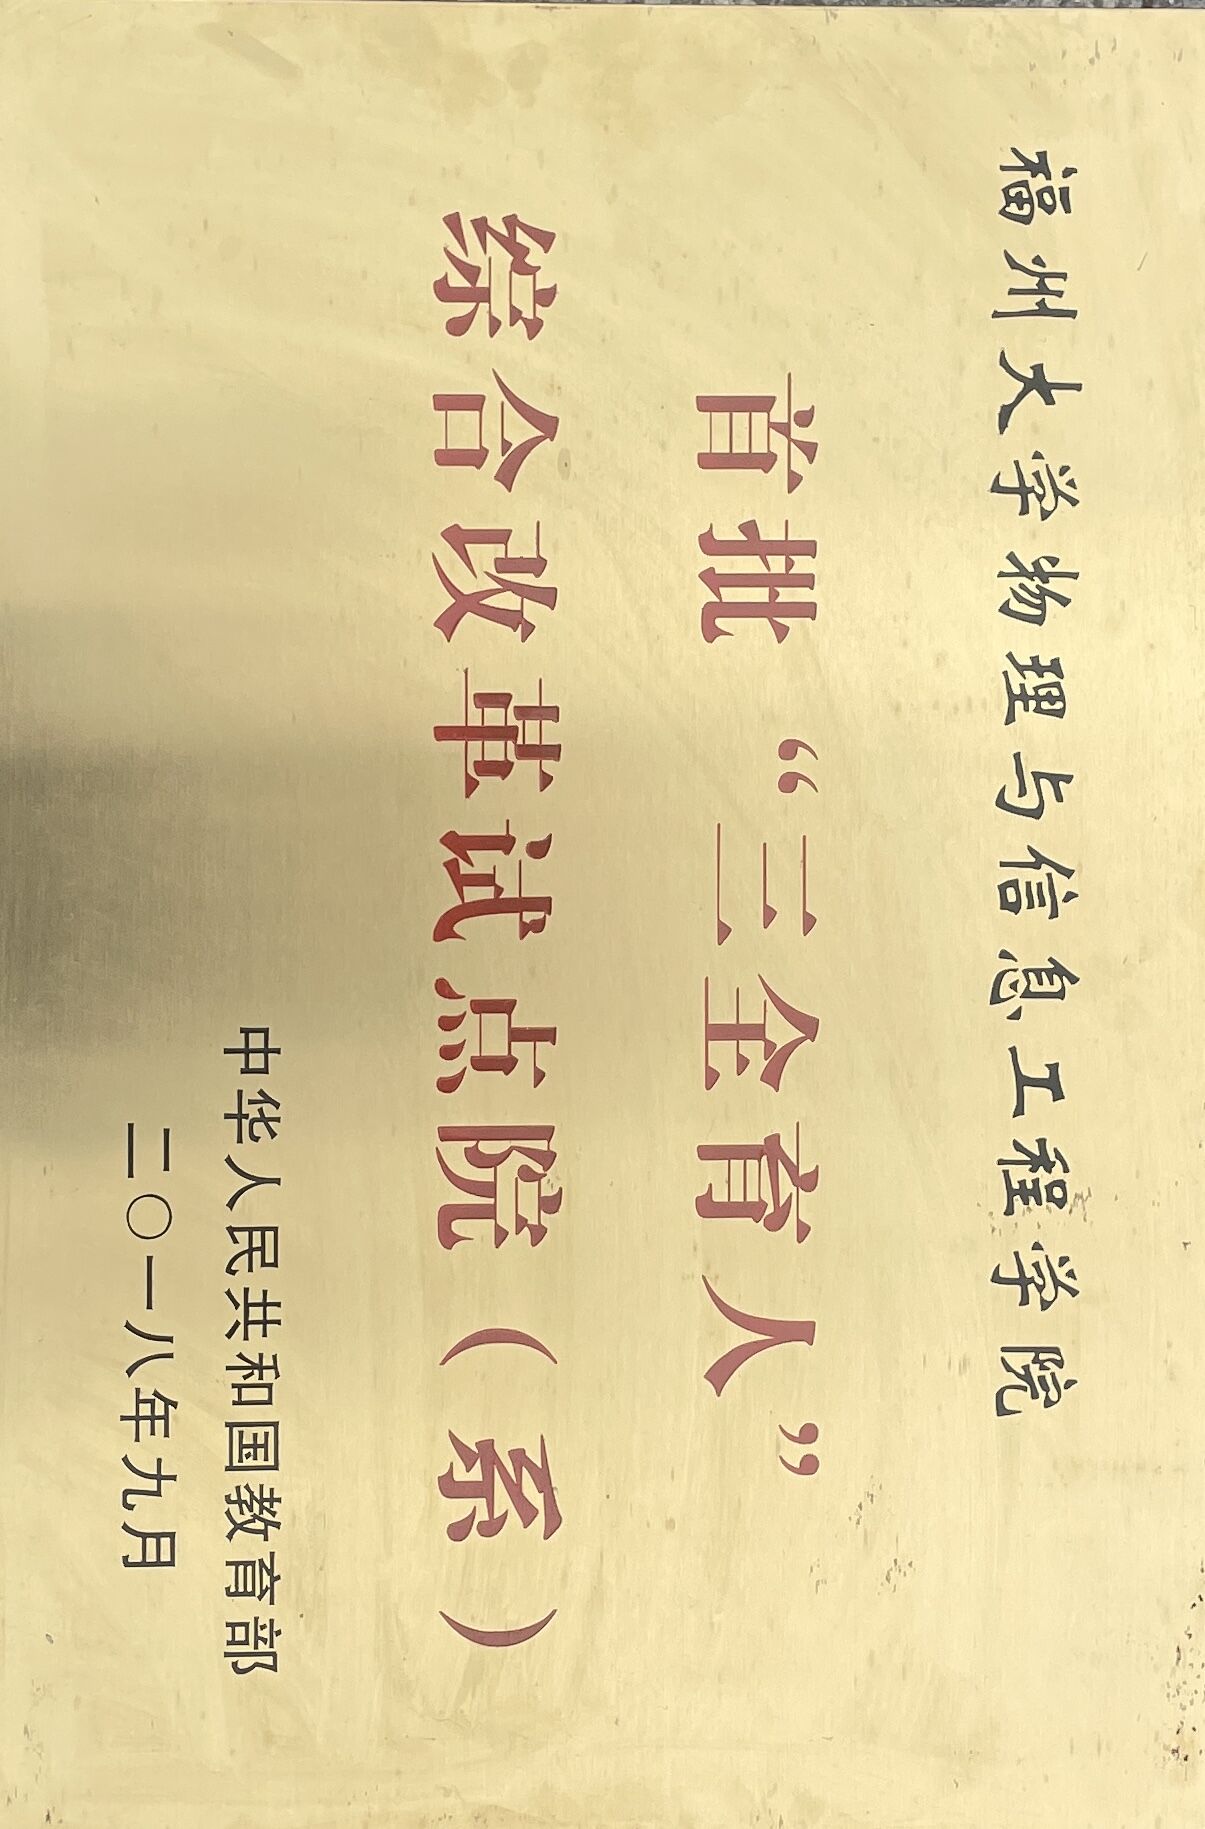 福州大学物理与信息工程学院
首批“三全育人”
综合改革试点院（系）
中华人民共和国教育部
二〇一八年九月